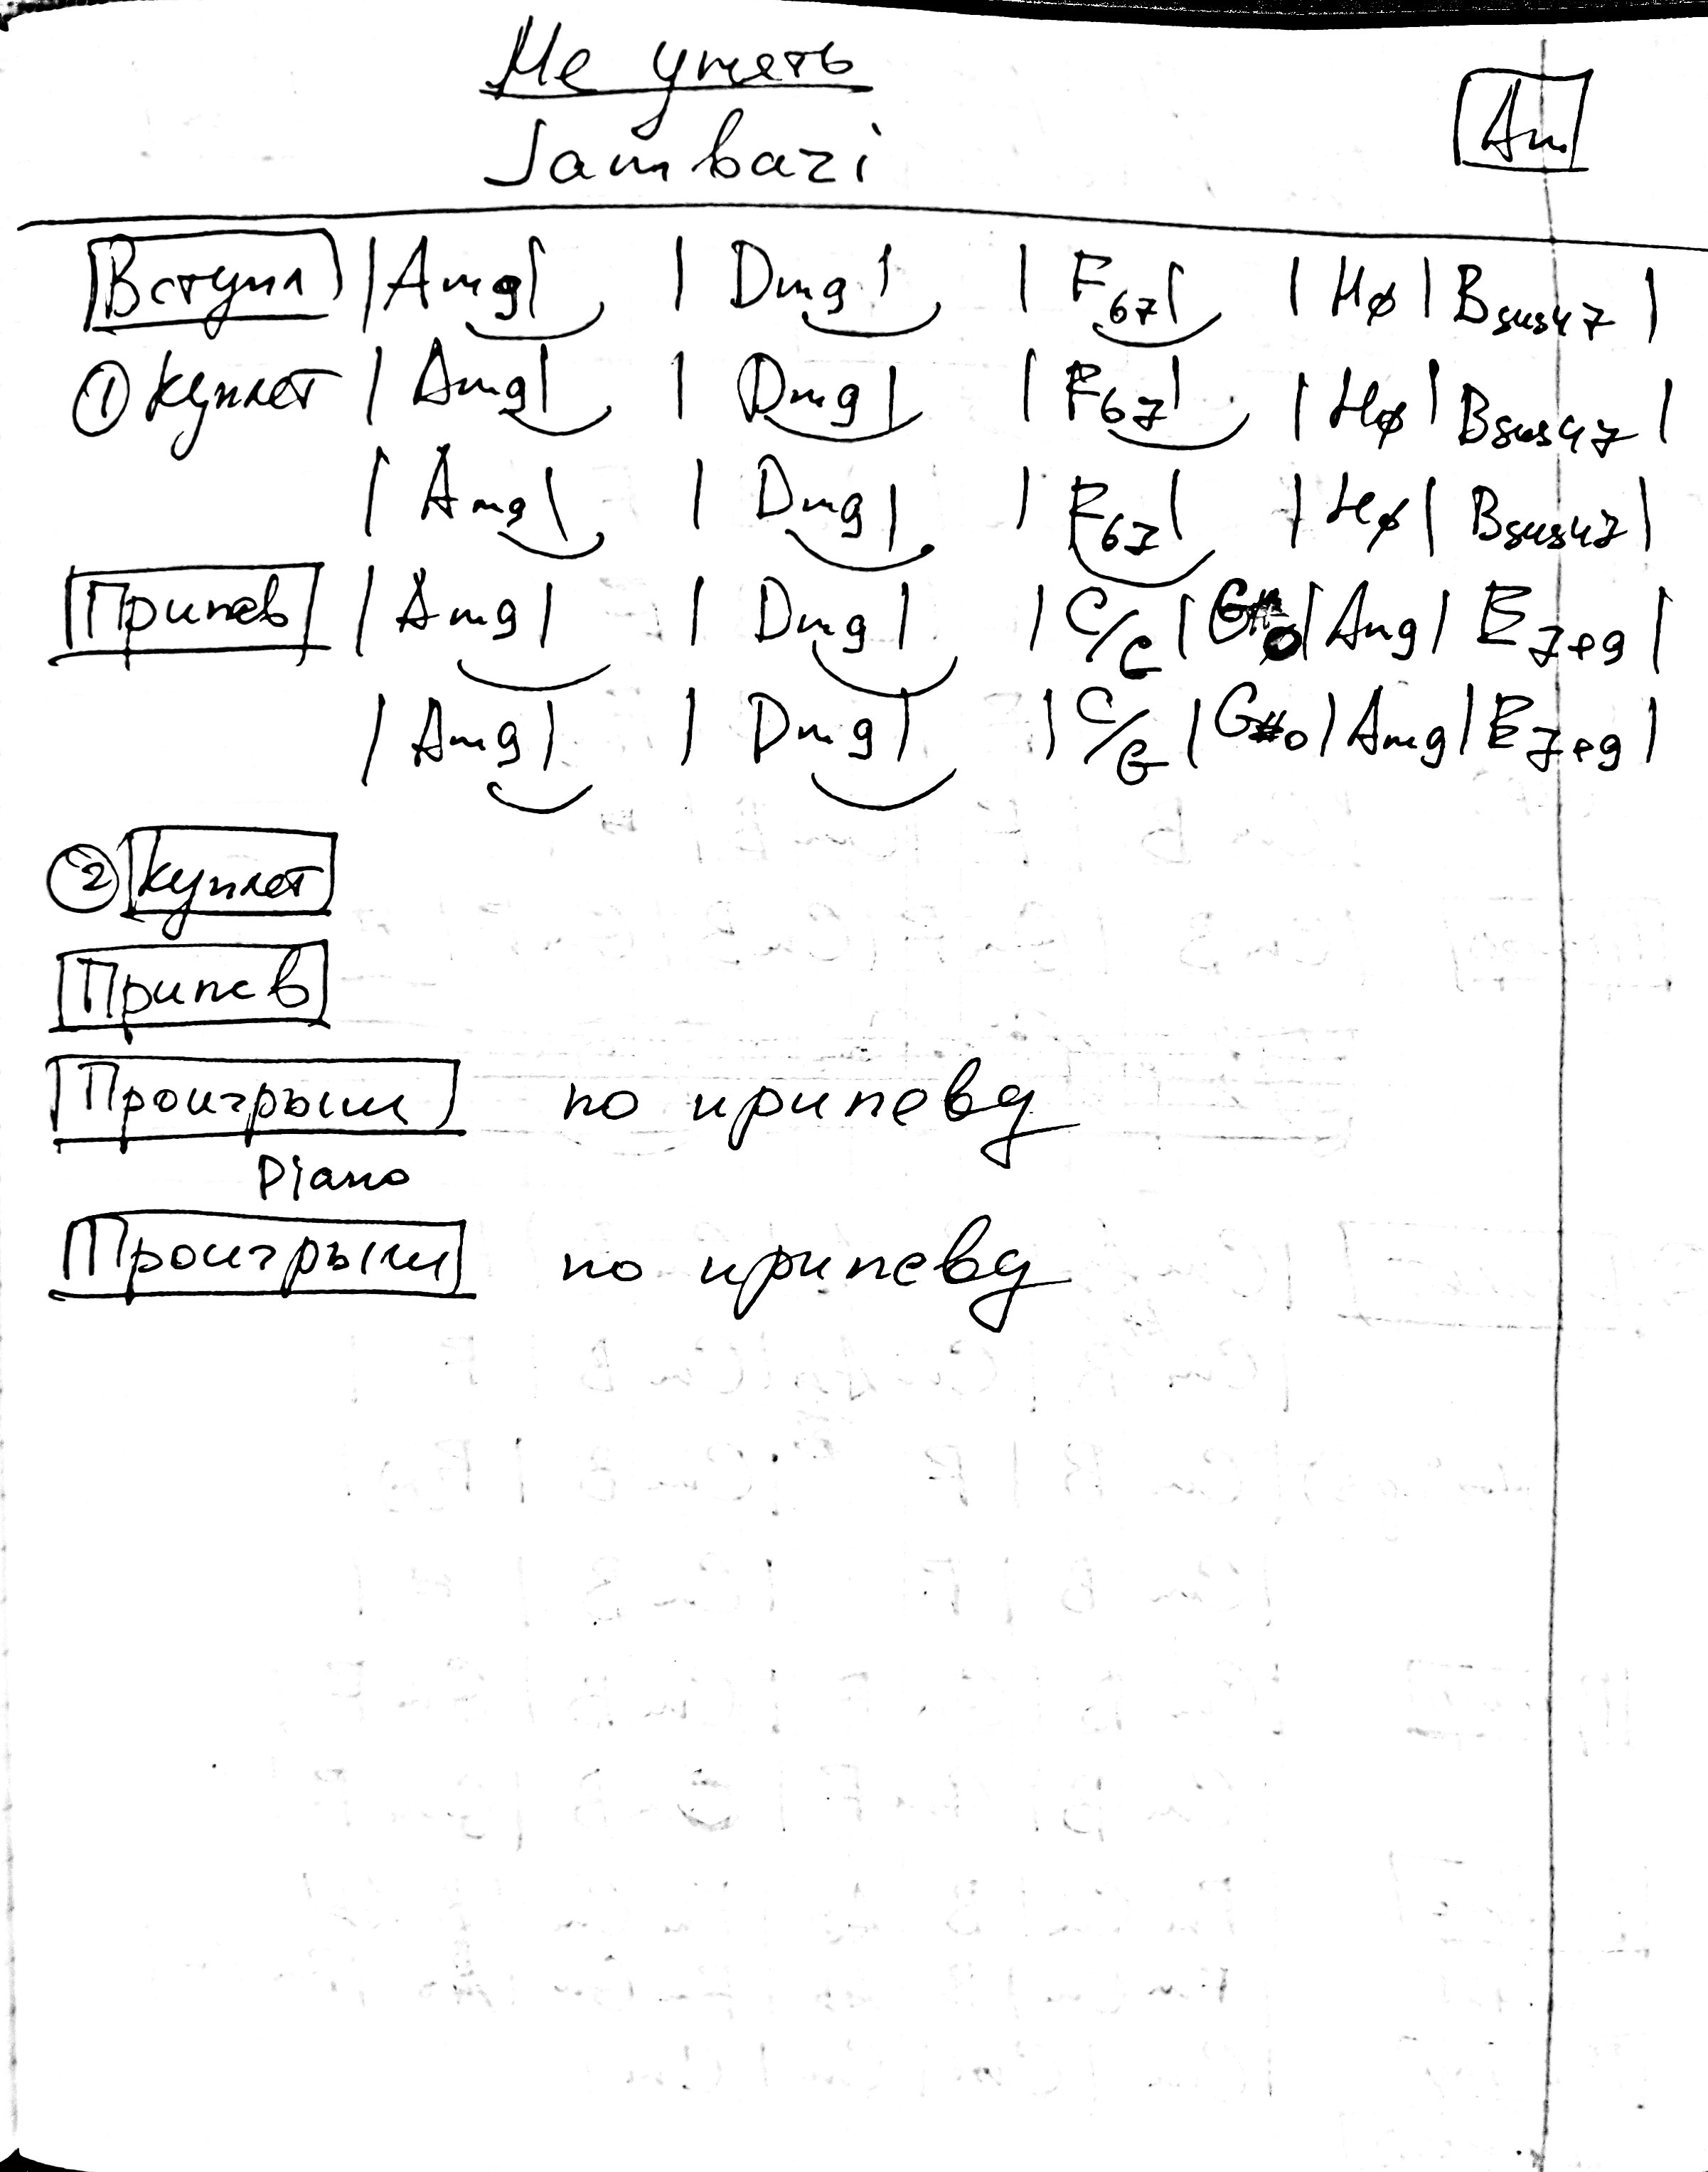 Не уметь
Jambazi
Am
Вступл | Am9 | | Dm9 | | F67 | | Hø | Bsus47 |
① куплет | Am9 | | Dm9 | | F67 | | Hø | Bsus47 |
| Am9 | | Dm9 | | F67 | | Hø | Bsus47 |
Припев | Am9 | | Dm9 | | C/G | G#o | Am9 | E7+9 |
| Am9 | | Dm9 | | C/G | G#o | Am9 | E7+9 |
② куплет
Припев
Проигрыш по припеву
Piano
Проигрыш по припеву